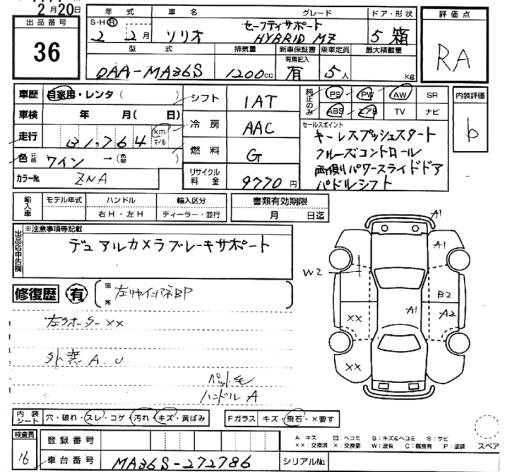 2月20日
出品番号 36
年式 車名 グレード ドア・形状 評価点
S・H・R 2 2月 ソリオ セーフティサポート HYBRID MZ 5 箱 RA
型式 排気量 新車保証書 乗車定員 最大積載量
有無記入
DAA-MA36S 1200cc 有 5人 kg
車歴 自家用・レンタ( )
シフト 1AT
純正のみ PS PW AW SR
ABS エアB TV ナビ
内装評価 b
車検 年 月( 日)
冷房 AAC
セールスポイント
キーレスプッシュスタート
クルーズコントロール
両側パワースライドドア
パドルシフト
走行 31,764 km マイル
燃料 G
色 元色 ワイン → 色替( )
カラーNo. ZNA
リサイクル料金 9770円
輸入車 モデル年式 ハンドル 輸入区分 書類有効期限
右H・左H ディーラー・並行 月 日迄
※注意事項等記載
デュアルカメラブレーキサポート
修復歴 有 箇所
左リヤインパネBP
左クオーターXX
外装A.U
ペット毛
ハンドルA
W2
A1
A1
B2
A1
A2
XX
XX
内装シート 穴・破れ・スレ・コゲ 汚れ・キズ・黄ばみ Fガラス キズ・飛石・X要す
A キズ U ヘコミ B:キズ&ヘコミ S:サビ
スペア
検査員 16
登録番号
車台番号 MA36S-272786 シリアルNo.